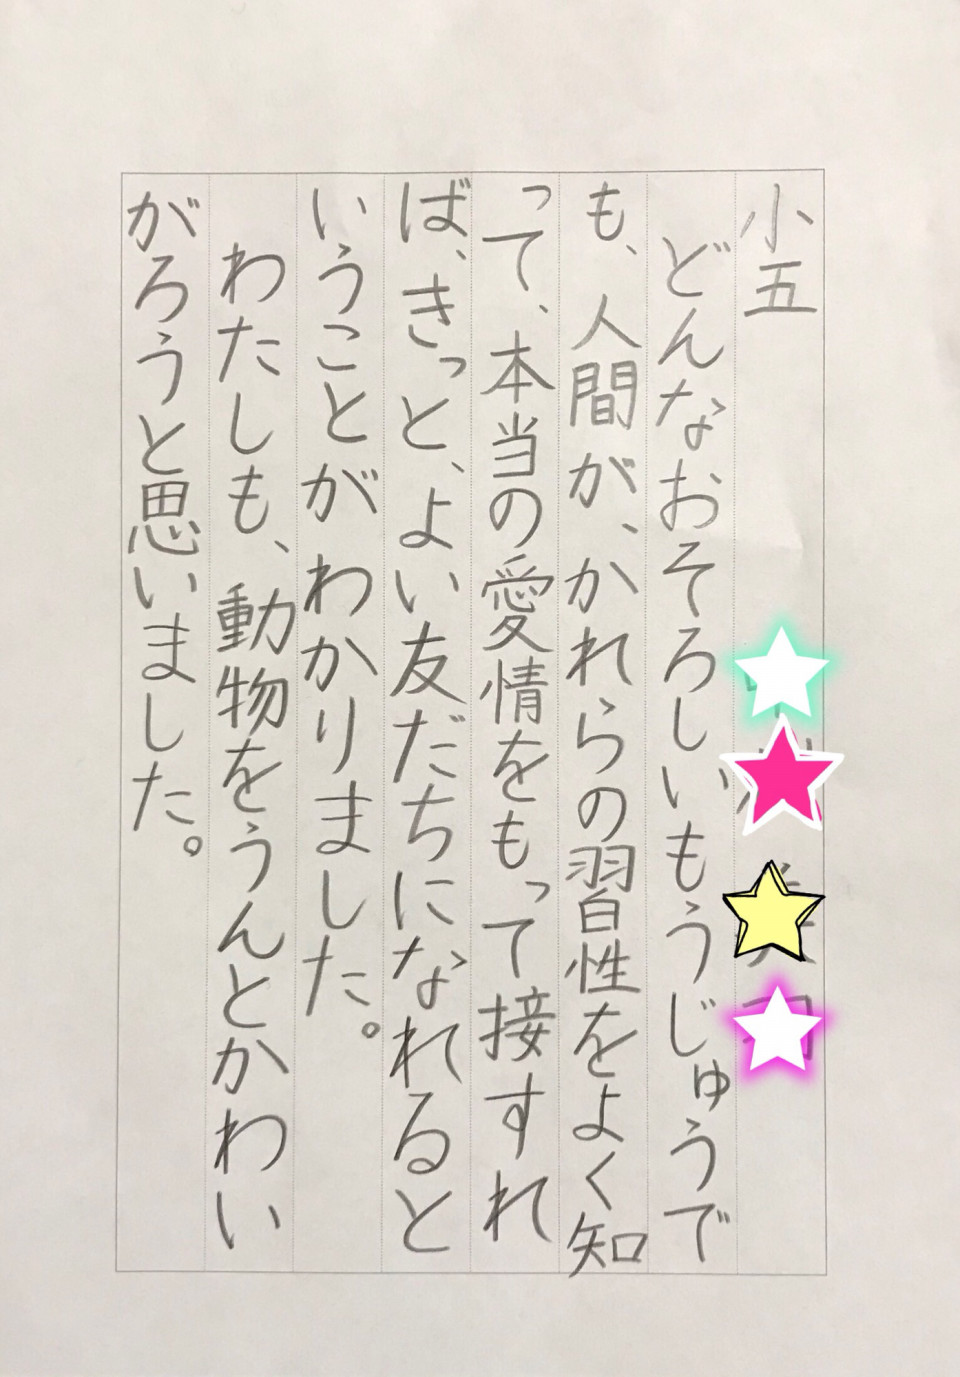 小五
どんなおそろしいもうじゅうで
も、人間が、かれらの習性をよく知
って、本当の愛情をもって接すれ
ば、きっと、よい友だちになれると
いうことがわかりました。
わたしも、動物をうんとかわい
がろうと思いました。